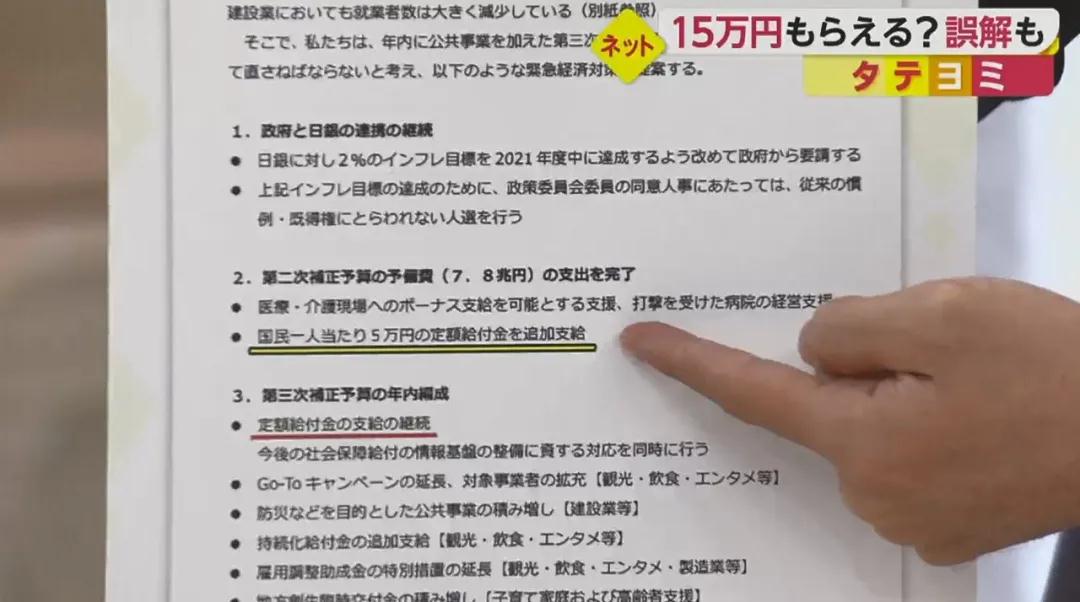 建設業においても就業者数は大きく減少している（別紙参照）
そこで、私たちは、年内に公共事業を加えた第三次
て直さねばならないと考え、以下のような緊急経済対策 提案する。
ネット
15万円もらえる？誤解も
タテヨミ
１．政府と日銀の連携の継続
● 日銀に対し２％のインフレ目標を2021年度中に達成するよう改めて政府から要請する
● 上記インフレ目標の達成のために、政策委員会委員の同意人事にあたっては、従来の慣
例・既得権にとらわれない人選を行う
２．第二次補正予算の予備費（７．８兆円）の支出を完了
● 医療・介護現場へのボーナス支給を可能とする支援、打撃を受けた病院の経営支援
● 国民一人当たり５万円の定額給付金を追加支給
３．第三次補正予算の年内編成
● 定額給付金の支給の継続
今後の社会保障給付の情報基盤の整備に資する対応を同時に行う
● Go-Toキャンペーンの延長、対象事業者の拡充【観光・飲食・エンタメ等】
● 防災などを目的とした公共事業の積み増し【建設業等】
● 持続化給付金の追加支給【観光・飲食・エンタメ等】
● 雇用調整助成金の特別措置の延長【観光・飲食・エンタメ・製造業等】
● 地方創生臨時交付金の積み増し【子育て家庭および高齢者支援】